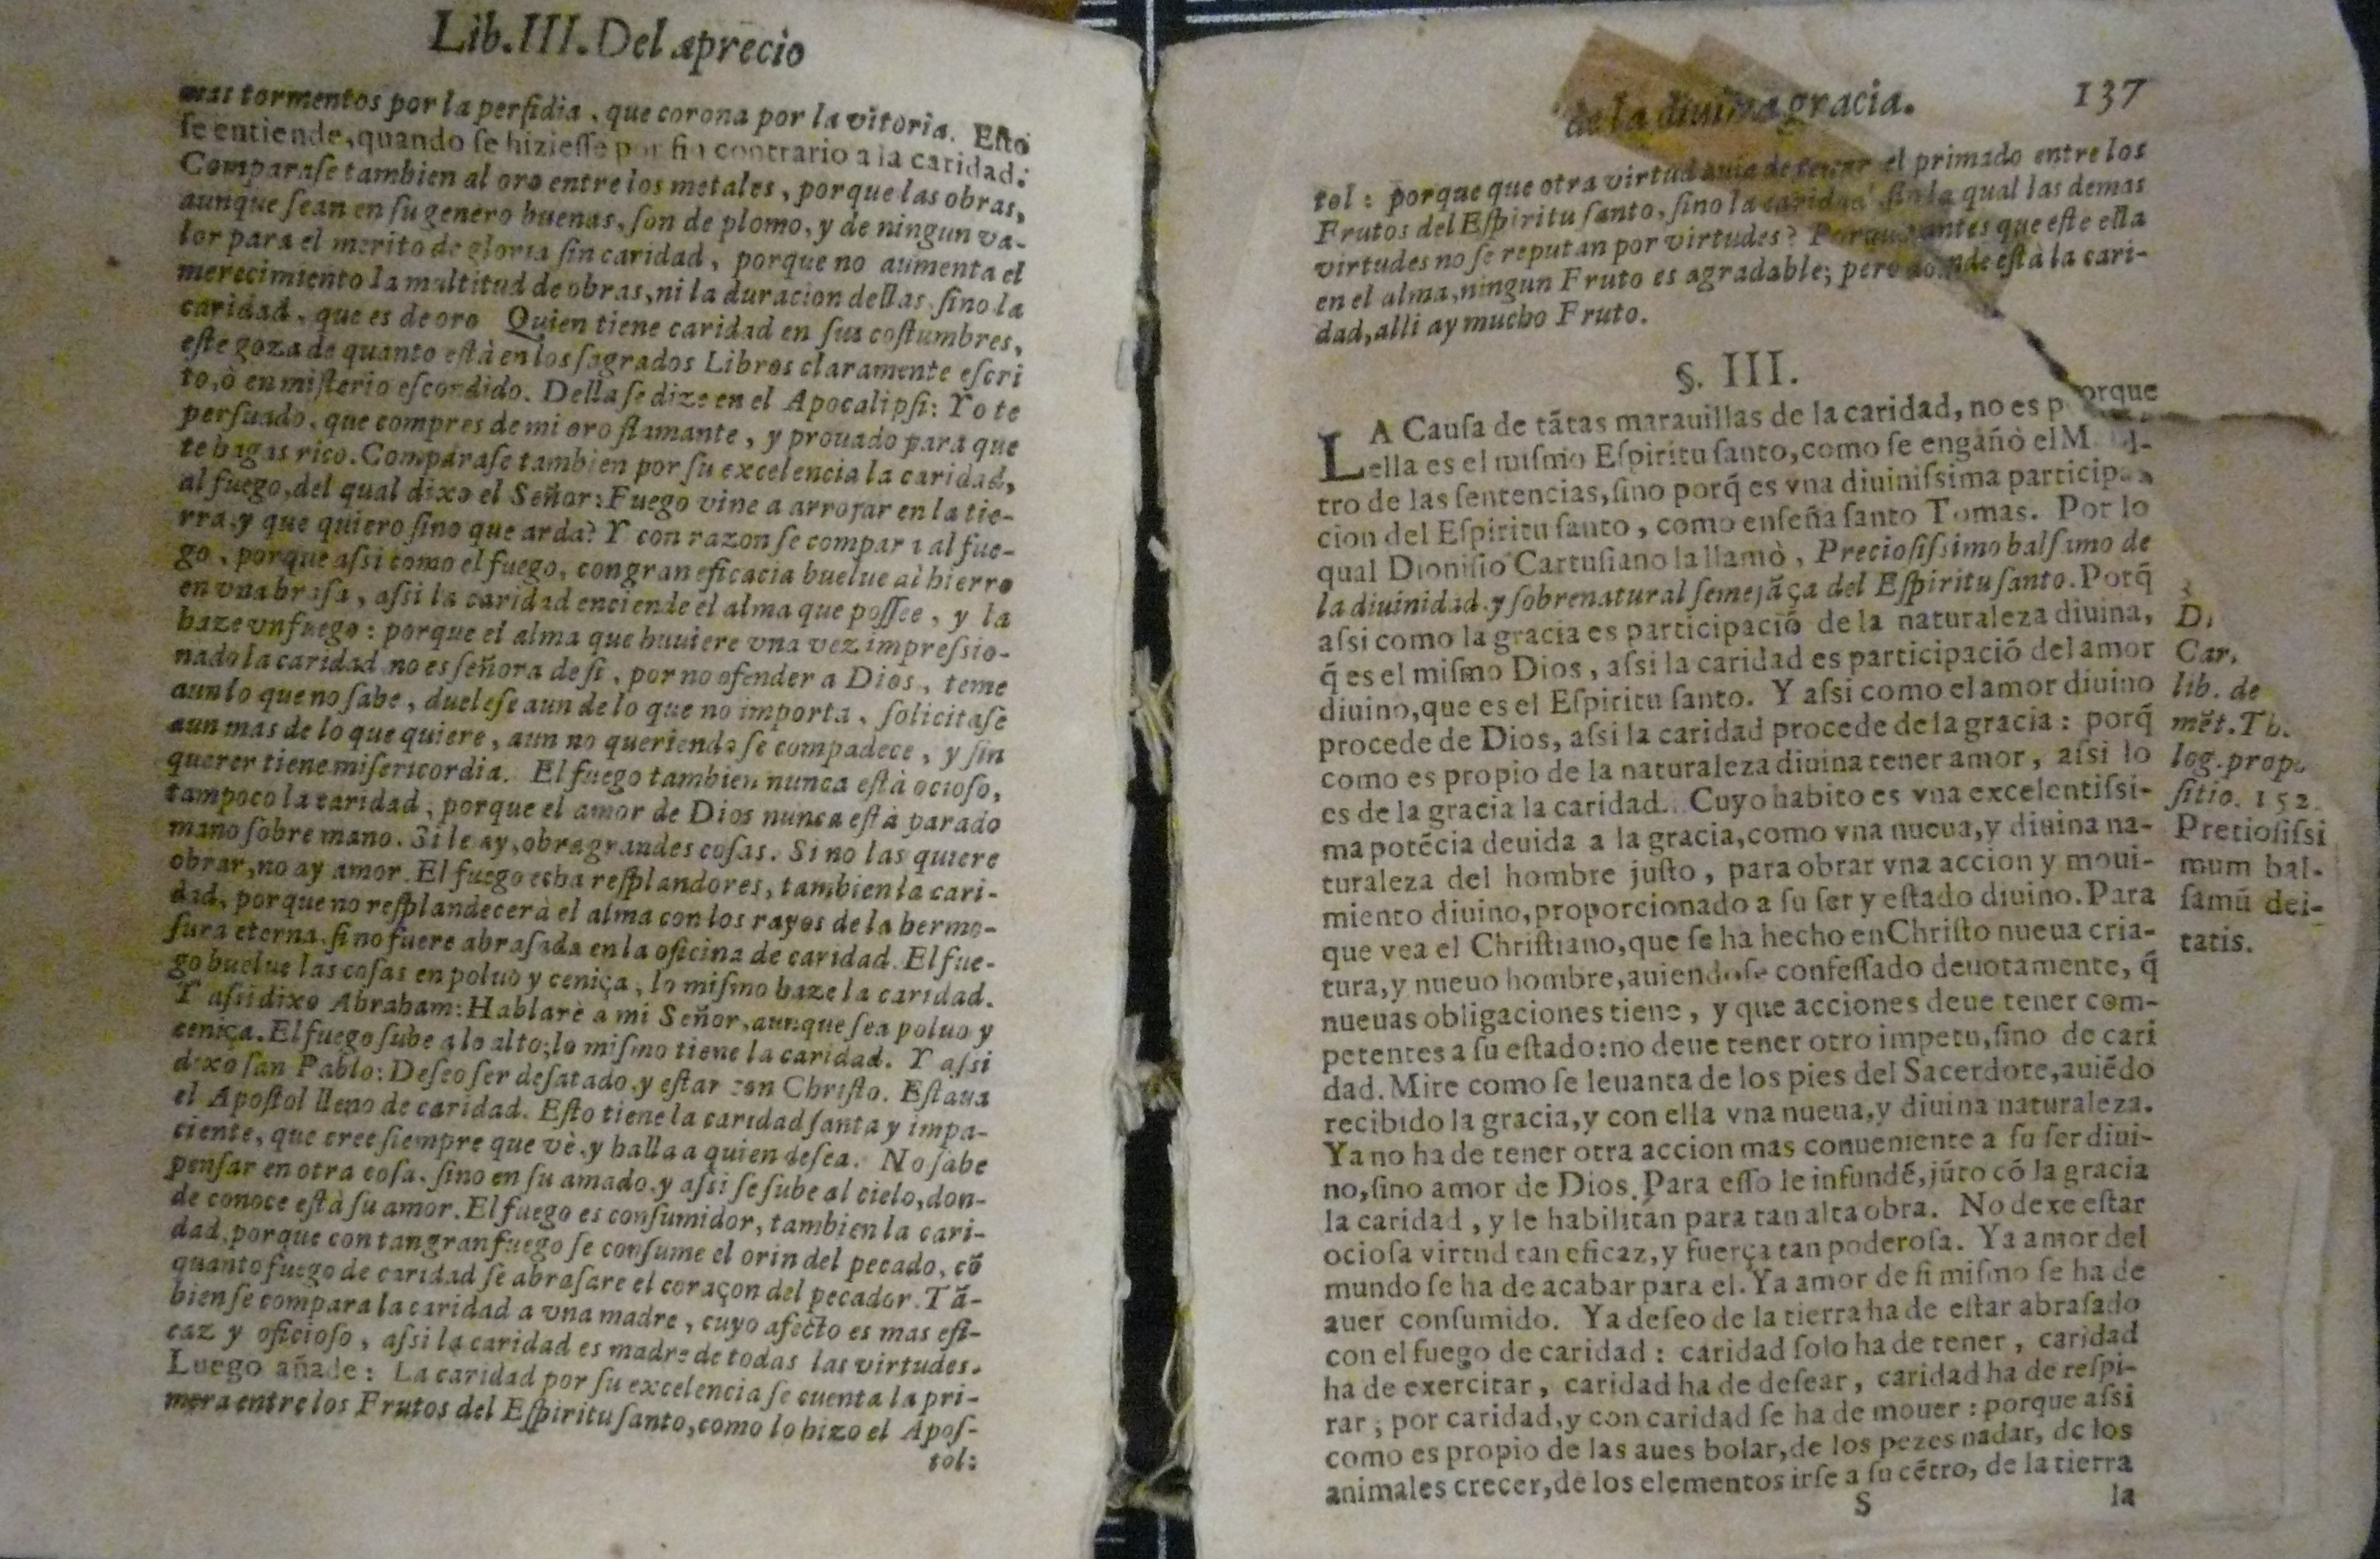 Lib.III.Del aprecio
mas tormentos por la perfidia, que corona por la vitoria. Eſto
ſe entiende, quando ſe hizieſſe por fin contrario a la caridad.
Comparaſe tambien al oro entre los metales, porque las obras,
aunque ſean en ſu genero buenas, ſon de plomo, y de ningun va-
lor para el merito de gloria ſin caridad, porque no aumenta el
merecimiento la multitud de obras, ni la duracion dellas, ſino la
caridad, que es de oro Quien tiene caridad en ſus coſtumbres,
eſte goza de quanto eſtà en los ſagrados Libros claramente eſcri
to, ò en miſterio eſcondido. Della ſe dize en el Apocalipſi: Yo te
perſuado, que compres de mi oro flamante, y prouado para que
te hagas rico. Comparaſe tambien por ſu excelencia la caridad,
al fuego, del qual dixo el Señor: Fuego vine a arrojar en la tie-
rra, y que quiero ſino que arda? Y con razon ſe compara al fue-
go, porque aſsi como el fuego, con gran eficacia buelue al hierro
en vna braſa, aſsi la caridad enciende el alma que poſſee, y la
haze vn fuego: porque el alma que huuiere vna vez impreſsio-
nado la caridad no es ſeñora de ſi, por no ofender a Dios, teme
aun lo que no ſabe, dueleſe aun de lo que no importa, ſolicitaſe
aun mas de lo que quiere, aun no queriendo ſe compadece, y ſin
querer tiene miſericordia. El fuego tambien nunca eſtà ocioſo,
tampoco la caridad, porque el amor de Dios nunca eſtà parado
mano ſobre mano. Si le ay, obra grandes coſas. Si no las quiere
obrar, no ay amor. El fuego echa reſplandores, tambien la cari-
dad, porque no reſplandecerà el alma con los rayos de la hermo-
ſura eterna, ſi no fuere abraſada en la oficina de caridad. El fue-
go buelue las coſas en poluo y ceniça, lo miſmo haze la caridad.
Y aſsi dixo Abraham: Hablarè a mi Señor, aunque ſea poluo y
ceniça. El fuego ſube a lo alto; lo miſmo tiene la caridad. Y aſsi
dixo ſan Pablo: Deſeo ſer deſatado, y eſtar con Chriſto. Eſtaua
el Apoſtol lleno de caridad. Eſto tiene la caridad ſanta y impa-
ciente, que cree ſiempre que vè, y halla a quien deſea. No ſabe
penſar en otra coſa, ſino en ſu amado, y aſsi ſe ſube al cielo, don-
de conoce eſtà ſu amor. El fuego es conſumidor, tambien la cari-
dad, porque con tan gran fuego ſe conſume el orin del pecado, cõ
quanto fuego de caridad ſe abraſare el coraçon del pecador. Tã-
bien ſe compara la caridad a vna madre, cuyo afecto es mas efi-
caz y oficioſo, aſsi la caridad es madre de todas las virtudes.
Luego añade: La caridad por ſu excelencia ſe cuenta la pri-
mera entre los Frutos del Eſpiritu ſanto, como lo hizo el Apoſ-
tol:
de la diuina gracia. 137
tol: porque que otra virtud auia de tener el primado entre los
Frutos del Eſpiritu ſanto, ſino la caridad ſin la qual las demas
virtudes no ſe reputan por virtudes? Porque antes que eſte ella
en el alma, ningun Fruto es agradable; pero donde eſtà la cari-
dad, alli ay mucho Fruto.
§. III.
LA Cauſa de tãtas marauillas de la caridad, no es porque
ella es el miſmo Eſpiritu ſanto, como ſe engañò el
tro de las ſentencias, ſino porq̃ es vna diuiniſsima participa
cion del Eſpiritu ſanto, como enſeña ſanto Tomas. Por lo
qual Dioniſio Cartuſiano la llamò, Precioſiſsimo balſamo de
la diuinidad, y ſobrenatural ſemejãça del Eſpiritu ſanto. Porq̃
aſsi como la gracia es participació de la naturaleza diuina,
q̃ es el miſmo Dios, aſsi la caridad es participació del amor
diuino, que es el Eſpiritu ſanto. Y aſsi como el amor diuino
procede de Dios, aſsi la caridad procede de la gracia: porq̃
como es propio de la naturaleza diuina tener amor, aſsi lo
es de la gracia la caridad. Cuyo habito es vna excelentiſsi-
ma potẽcia deuida a la gracia, como vna nueua, y diuina na-
turaleza del hombre juſto, para obrar vna accion y moui-
miento diuino, proporcionado a ſu ſer y eſtado diuino. Para
que vea el Chriſtiano, que ſe ha hecho en Chriſto nueua cria-
tura, y nueuo hombre, auiendoſe confeſſado deuotamente, q̃
nueuas obligaciones tiene, y que acciones deue tener com-
petentes a ſu eſtado: no deue tener otro impetu, ſino de cari
dad. Mire como ſe leuanta de los pies del Sacerdote, auiẽdo
recibido la gracia, y con ella vna nueua, y diuina naturaleza.
Ya no ha de tener otra accion mas conueniente a ſu ſer diui-
no, ſino amor de Dios. Para eſſo le infundẽ, jũto cõ la gracia
la caridad, y le habilitan para tan alta obra. No dexe eſtar
ocioſa virtud tan eficaz, y fuerça tan poderoſa. Ya amor del
mundo ſe ha de acabar para el. Ya amor de ſi miſmo ſe ha de
auer conſumido. Ya deſeo de la tierra ha de eſtar abraſado
con el fuego de caridad: caridad ſolo ha de tener, caridad
ha de exercitar, caridad ha de deſear, caridad ha de reſpi-
rar; por caridad, y con caridad ſe ha de mouer: porque aſsi
como es propio de las aues bolar, de los pezes nadar, de los
animales crecer, de los elementos irſe a ſu cẽtro, de la tierra
S la
D.
Car.
lib. de
mẽt. Th.
log. propo
ſitio. 152.
Pretioſiſsi
mum bal-
ſamũ dei-
tatis.